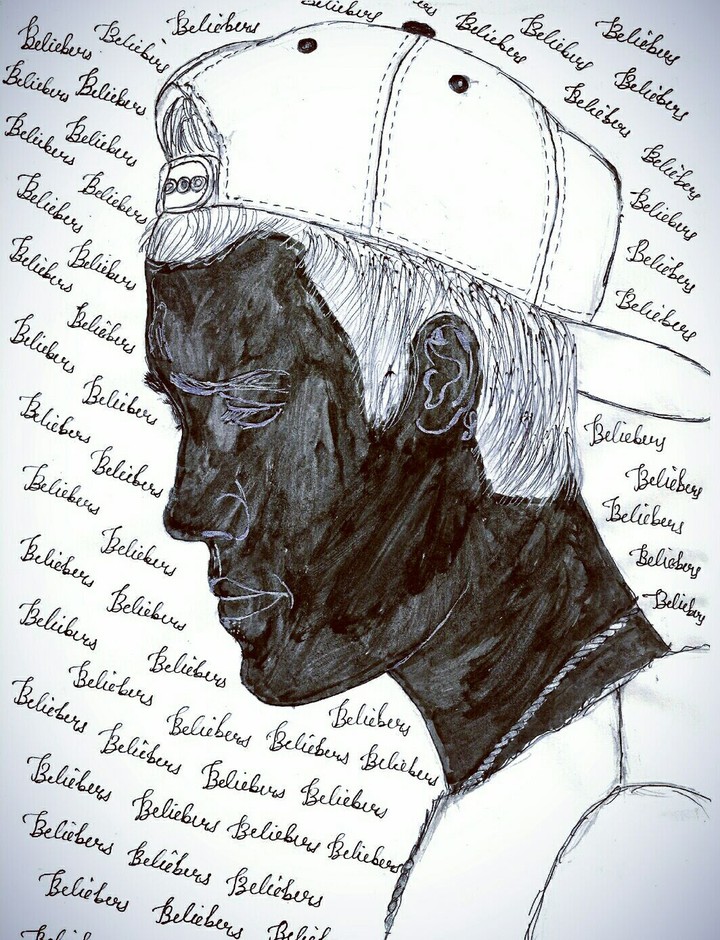 Beliebers Beliebers Beliebers Beliebers Beliebers Beliebers Beliebers
Beliebers Beliebers Beliebers Beliebers
Beliebers Beliebers Beliebers
Beliebers Beliebers Beliebers
Beliebers Beliebers Beliebers
Beliebers Beliebers
Beliebers
Beliebers
Beliebers Beliebers
Beliebers Beliebers
Beliebers Beliebers
Beliebers Beliebers
Beliebers
Beliebers Beliebers
Beliebers
Beliebers
Beliebers Beliebers
Beliebers Beliebers Beliebers Beliebers
Beliebers Beliebers Beliebers
Beliebers Beliebers Beliebers Beliebers
Beliebers Beliebers Beliebers
Beliebers Beliebers